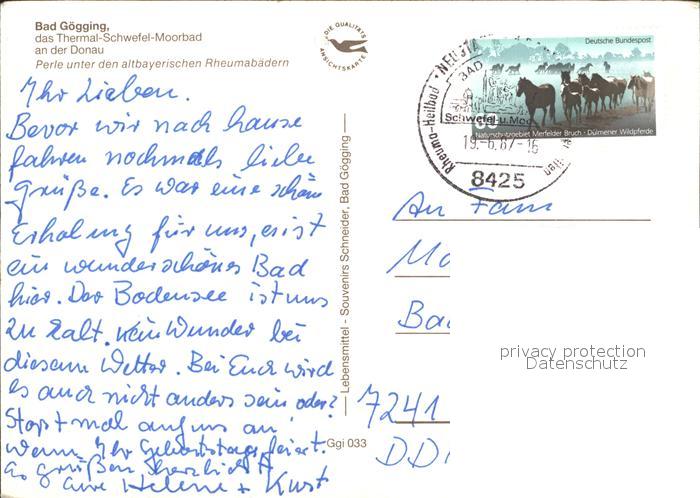 Bad Gögging,
das Thermal-Schwefel-Moorbad
an der Donau
Perle unter den altbayerischen Rheumabädern
DIE QUALITÄTS
ANSICHTSKARTE
Deutsche Bundespost
Naturschutzgebiet Merfelder Bruch · Dülmener Wildpferde
BAD
Schwefel-u.Moo
Rheuma-Heilbad
19.-6.87-16
8425
Ihr Lieben.
Bevor wir nach hause
fahren nochmals liebe
Grüße. Es war eine schöne
Erholung für uns, es ist
ein wunderschönes Bad
hier. Der Bodensee ist uns
zu kalt. kein Wunder bei
diesem Wetter. Bei Euch wird
es auch nicht anders sein oder?
mal
wenn Ihr Geburtstag feiert.
Es grüßen herzlichst
Eure Helene + Kurt
Lebensmittel - Souvenirs Schneider, Bad Gögging
An Fam
Mo
Ba
7241
DD
Ggi 033
privacy protection
Datenschutz